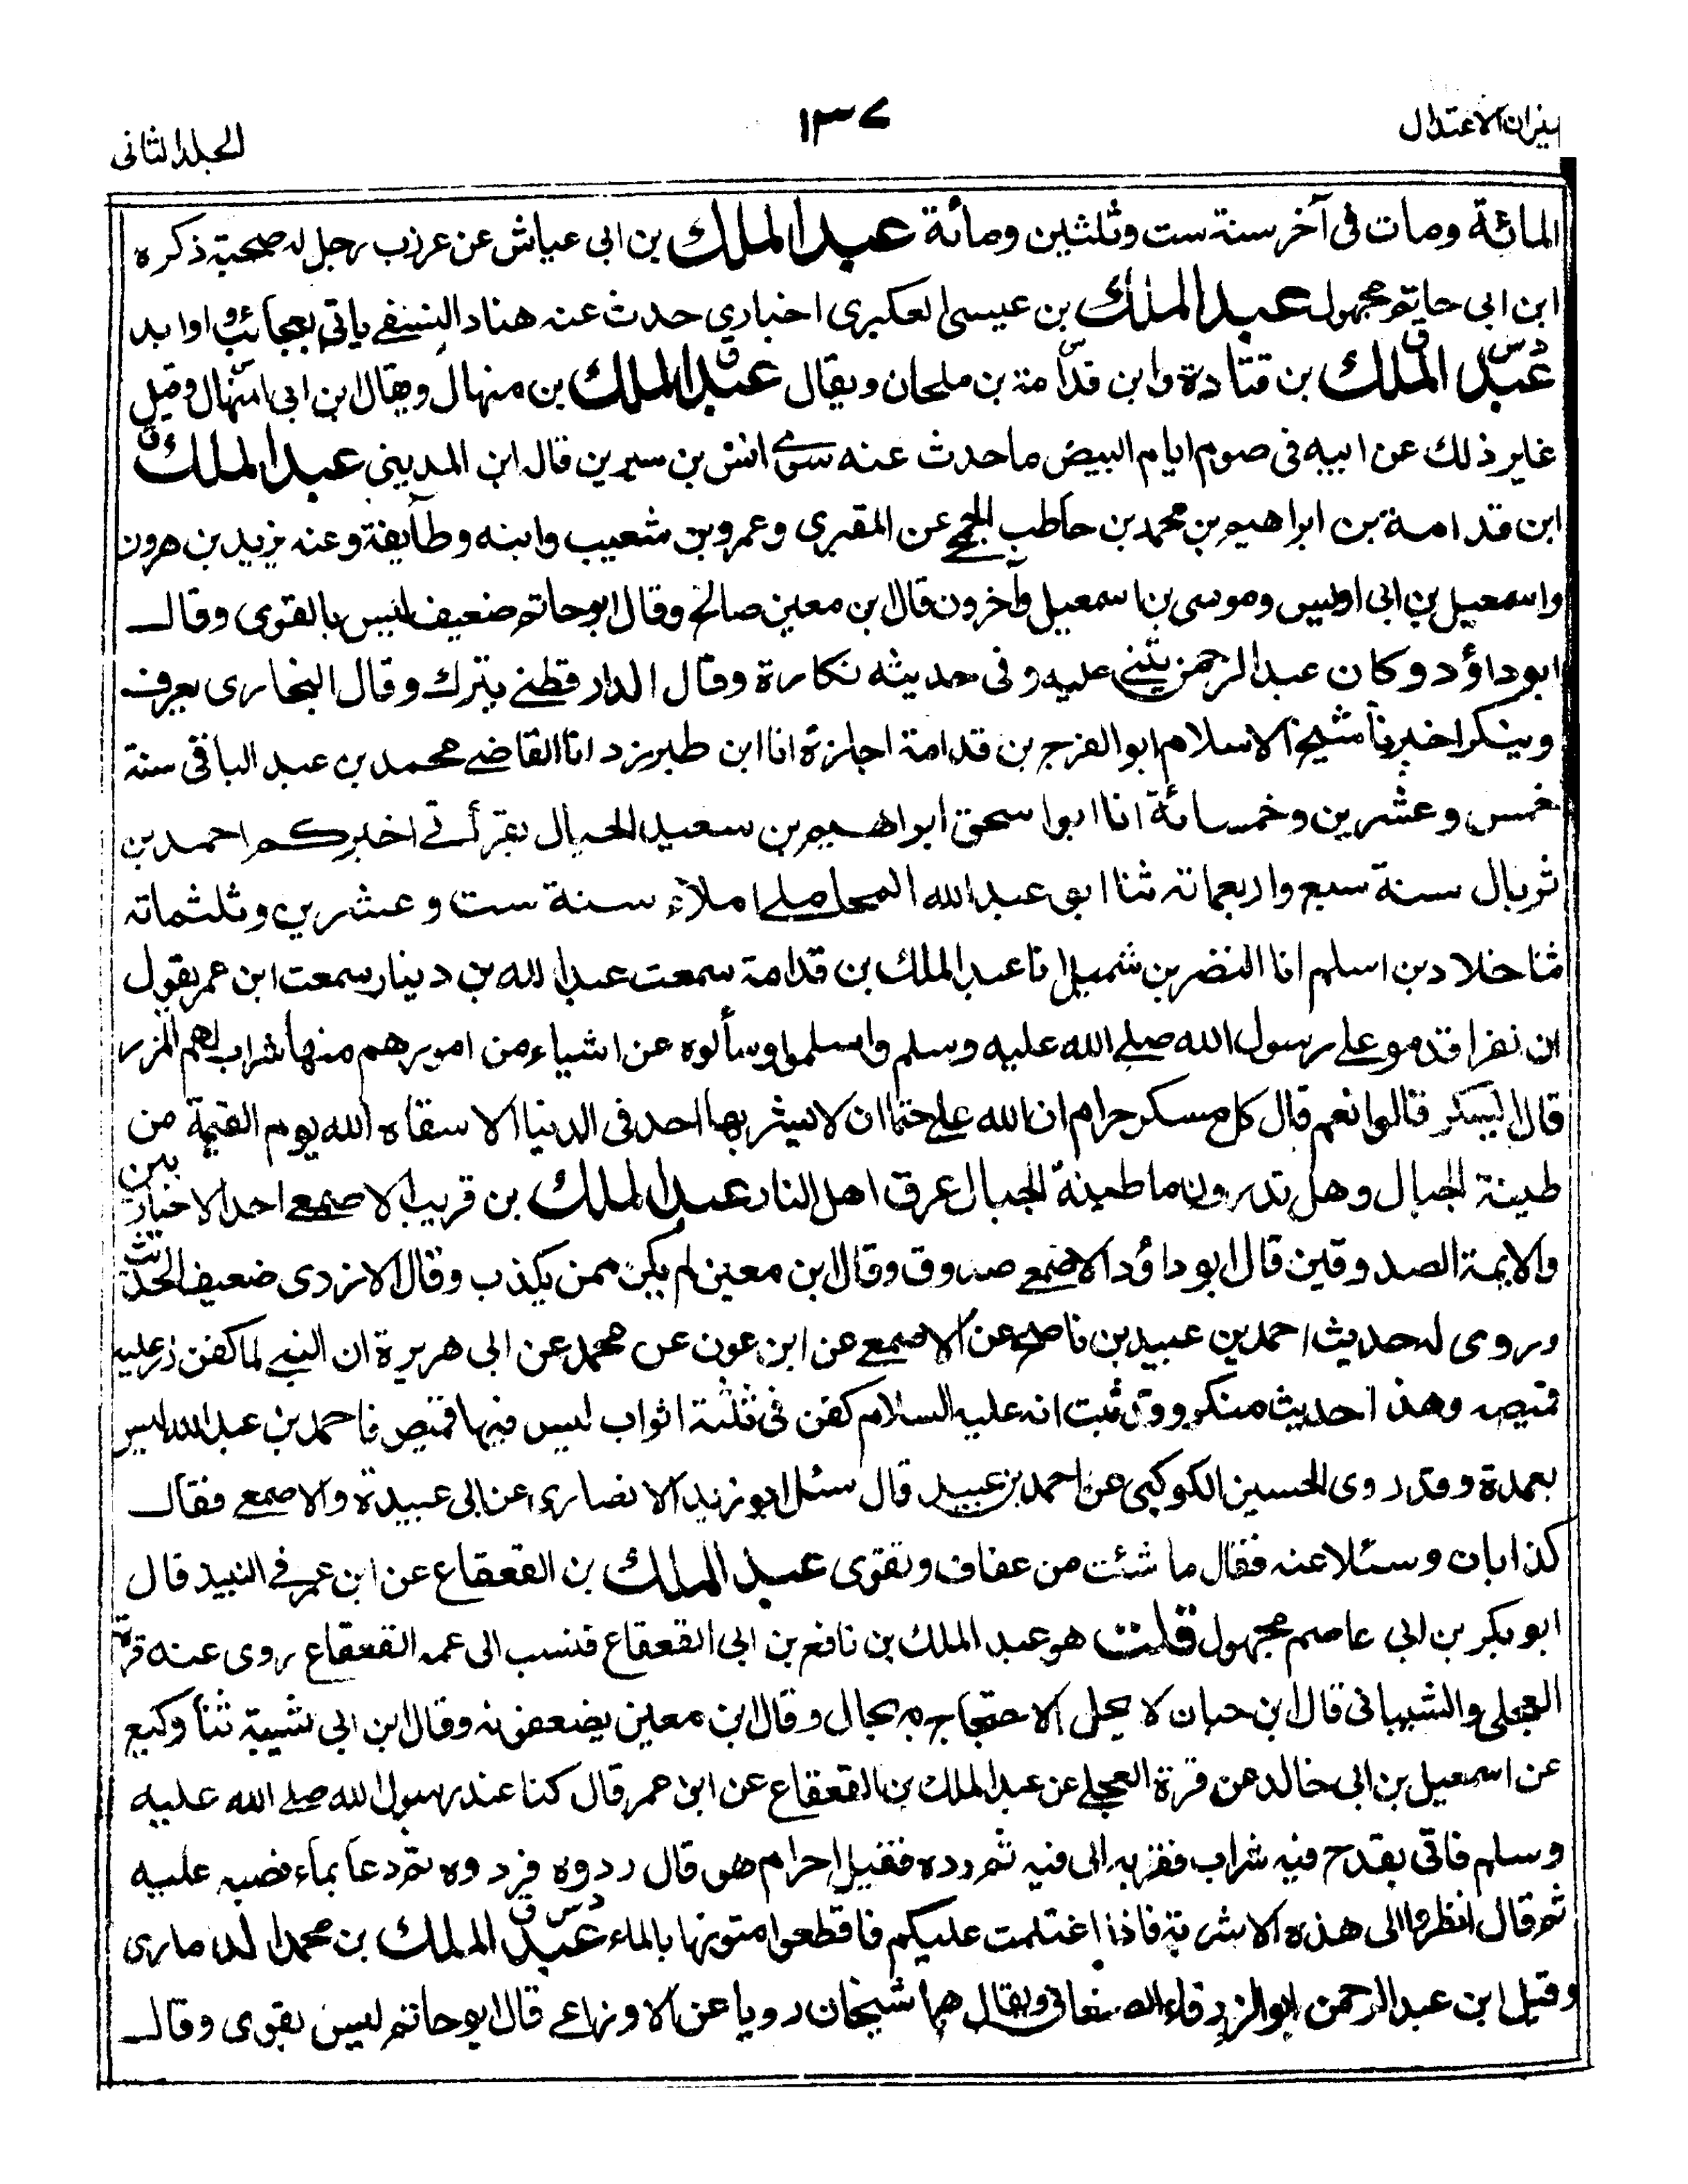 ميزان الاعتدال
١٣٧
الجلد الثانى
المائة ومات فى آخر سنة ست وثلثين ومائة عبد الملك بن ابى عياش عن عرزب رجل له صحبة ذكره
ابن ابى حاتم مجهول عبد الملك بن عيسى العكبرى اخبارى حدث عنه هناد النسفے ياتى بعجائب واوابد
د س ق
عبد الملك بن قتادة وابن قدامة بن ملحان ويقال عبد الملك بن منهال ويقال ابن ابى المنهال وقيل
غير ذلك عن ابيه فى صوم ايام البيض ما حدث عنه سوے انس بن سيرين قاله ابن المدينى عبد الملك
ق
ابن قدامة بن ابراهيم بن محمد بن حاطب الجمحے عن المقبرى وعمرو بن شعيب وابنه وطآيفة وعنه يزيد بن هرون
واسمعيل بن ابى اويس وموسى بن اسمعيل وآخرون قال ابن معين صالح وقال ابو حاتم ضعيف ليس بالقوى وقال
ابو داؤد وكان عبد الرحمن يثنے عليه وفى حديثه نكارة وقال الدارقطنے يترك وقال البخارى يعرف
وينكر اخبرنا شيخ الاسلام ابو الفرج بن قدامة اجازة انا ابن طبرزد انا القاضے محمد بن عبد الباقى سنة
خمس وعشرين وخمسمائة انا ابو اسحق ابراهيم بن سعيد الحبال بقرأتے اخبركم احمد بن
ثربال سنة سبع واربعمائة ثنا ابو عبد الله المحاملے املاء سنة ست وعشرين وثلثمائة
ثنا خلاد بن اسلم انا النضر بن شميل انا عبد الملك بن قدامة سمعت عبد الله بن دينار سمعت ابن عمر يقول
ان نفرا قدموا على رسول الله صلے الله عليه وسلم واسلموا وسألوه عن اشياء من امورهم منها شراب لهم المزر
قال ايسكر قالوا نعم قال كل مسكر حرام ان الله على حتما ان لا يشربها احد فى الدنيا الا سقاه الله يوم القيمة من
طينة الجبال وهل تدرون ما طينة الجبال عرق اهل النار عبد الملك بن قريب الاصمعے احد الاخباريين
والايمة الصدوقين قال ابو داؤد الاصمعے صدوق وقال ابن معين لم يكن ممن يكذب وقال الازدى ضعيف الحديث
وروى له حديث احمد بن عبيد بن ناصح عن الاصمعے عن ابن عون عن محمد عن ابى هريرة ان النبے لما كفن زر عليه
قميصه وهذا حديث منكر وقد ثبت انه عليه السلام كفن فى ثلثة اثواب ليس فيها قميص فاحمد بن عبد الله ليس
بعمدة وقد روى الحسين الكوكبى عن احمد بن عبيد قال سئل ابو زيد الانصارى عن ابى عبيدة والاصمعے فقال
كذابان وسئلا عنه فقال ما شئت من عفاف وتقوى عبد الملك بن القعقاع عن ابن عمر فے النبيذ قال
ابو بكر بن ابى عاصم مجهول قلت هو عبد الملك بن نافع بن ابى القعقاع فنسب الى عمه القعقاع روى عنه قرة
العجلى والشيبانى قال ابن حبان لا يحل الاحتجاج به بحال وقال ابن معين يضعفونه وقال ابن ابى شيبة ثنا وكيع
عن اسمعيل بن ابى خالد عن قرة العجلے عن عبد الملك بن القعقاع عن ابن عمر قال كنا عند رسول الله صلے الله عليه
وسلم فاتى بقدح فيه شراب فقربه الى فيه ثم رده فقيل احرام هو قال ردوه فردوه ثم دعا بماء فصبه عليه
ثم قال انظروا الى هذه الاشربة فاذا اغتلمت عليكم فاقطعوا متونها بالماء عبد الملك بن محمد الذمارى
د س ق
وقيل ابن عبد الرحمن ابو الزرقاء الصنعانى ويقال هما شيخان رويا عن الاوزاعے قال ابو حاتم ليس بقوى وقال